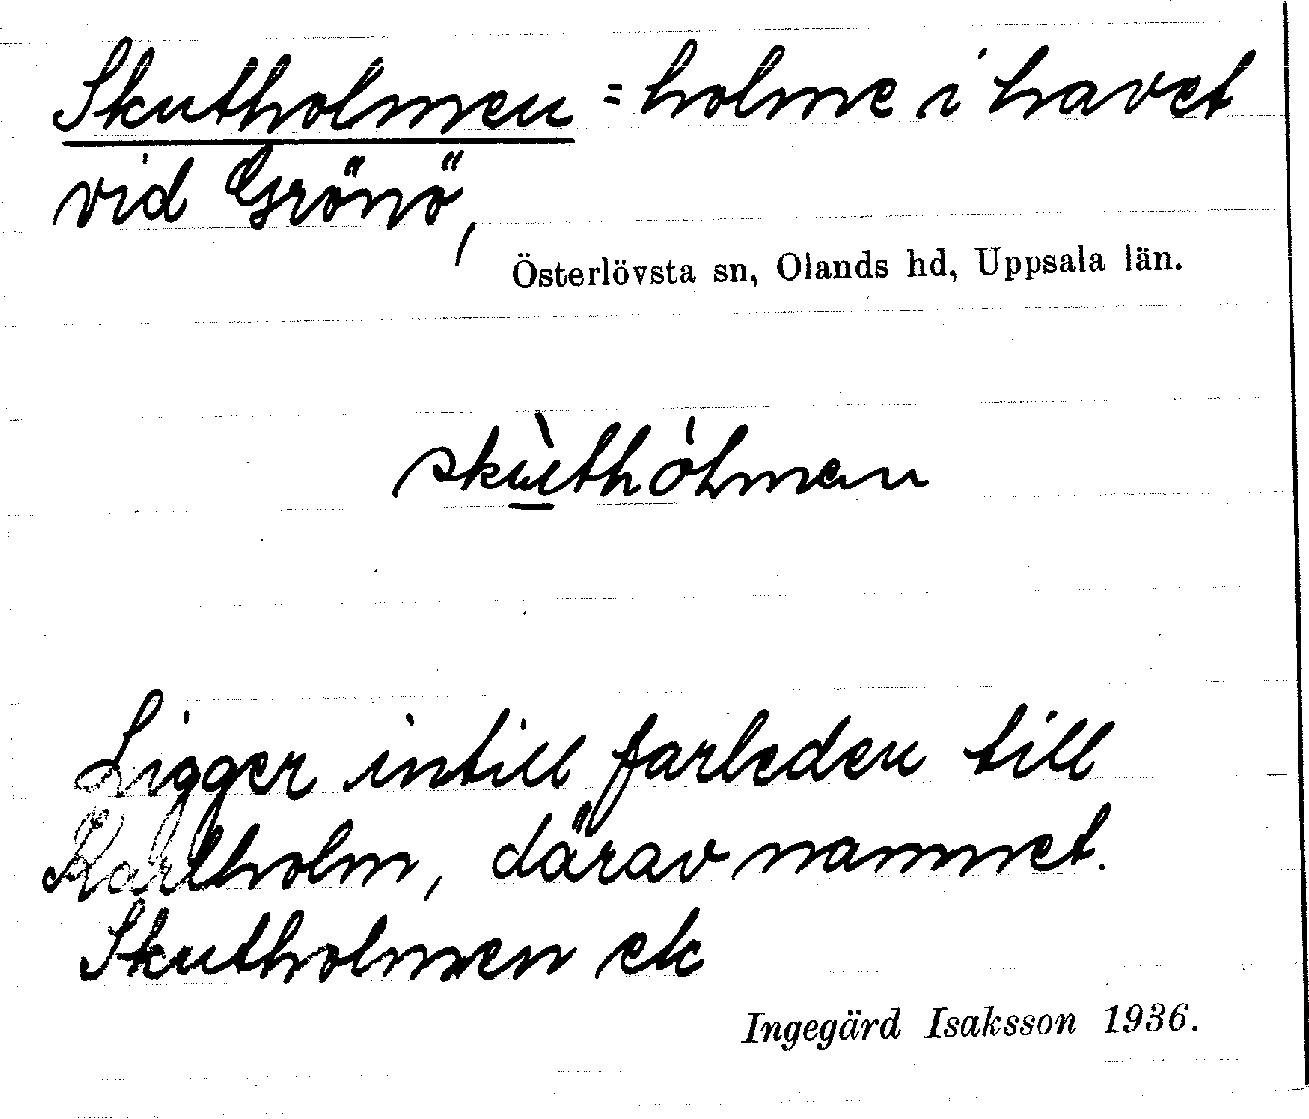 Skutholmen = holme i havet
vid Grönö,
Österlövsta sn, Olands hd, Uppsala län.
skùthólmen
Ligger intill farleden till
Karlholm, därav namnet.
Skutholmen ek
Ingegärd Isaksson 1936.